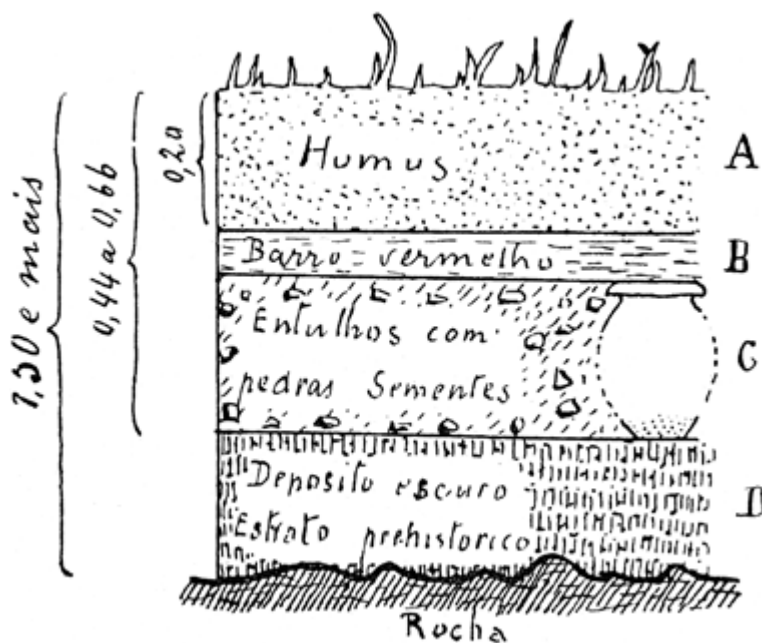 1,30 e mais
0,44 a 0,66
0,20
Humus
A
Barro vermelho
B
Entulhos com
pedras Sementes
C
Deposito escuro
Estrato prehistorico
D
Rocha